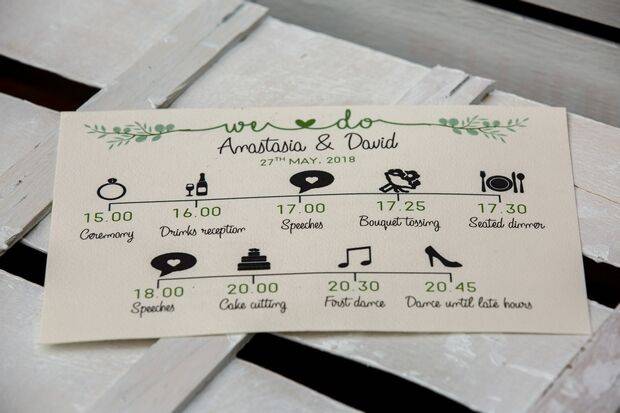 we do
Anastasia & David
27TH MAY, 2018
15.00 16.00 17.00 17.25 17.30
Ceremony Drinks reception Speeches Bouquet tossing Seated dinner
18.00 20.00 20.30 20.45
Speeches Cake cutting First dance Dance until late hours